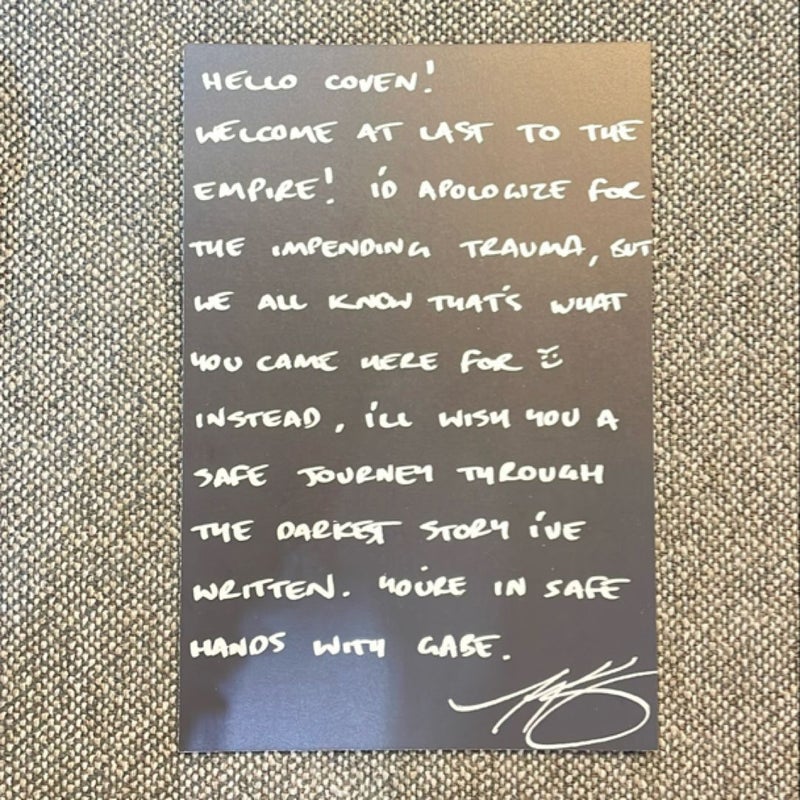 HELLO COVEN!
WELCOME AT LAST TO THE
EMPIRE! I'D APOLOGIZE FOR
THE IMPENDING TRAUMA, BUT
WE ALL KNOW THAT'S WHAT
YOU CAME HERE FOR
INSTEAD, I'LL WISH YOU A
SAFE JOURNEY THROUGH
THE DARKEST STORY I'VE
WRITTEN. YOU'RE IN SAFE
HANDS WITH GABE.